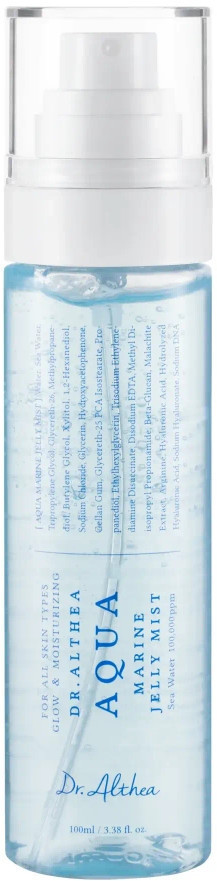 [AQUA MARINE JELLY MIST] Water, Sea Water,
Dipropylene Glycol, Glycereth-26, Methylpropane
diol, Butylene Glycol, Xylitol, 1,2-Hexanediol,
Sodium Chloride, Glycerin, Hydroxyacetophenone,
Gellan Gum, Glycereth-25 PCA Isostearate, Pro-
panediol, Ethylhexylglycerin, Trisodium Ethylene-
diamine Disuccinate, Disodium EDTA, Methyl Di-
isopropyl Propionamide, Beta-Glucan, Malachite
Extract, Arginine, Hyaluronic Acid, Hydrolyzed
Hyaluronic Acid, Sodium Hyaluronate, Sodium DNA
FOR ALL SKIN TYPES
GLOW & MOISTURIZING
DR.ALTHEA
AQUA
MARINE
JELLY MIST
Sea Water 100,000ppm
Dr.Althea
100ml / 3.38 fl. oz.